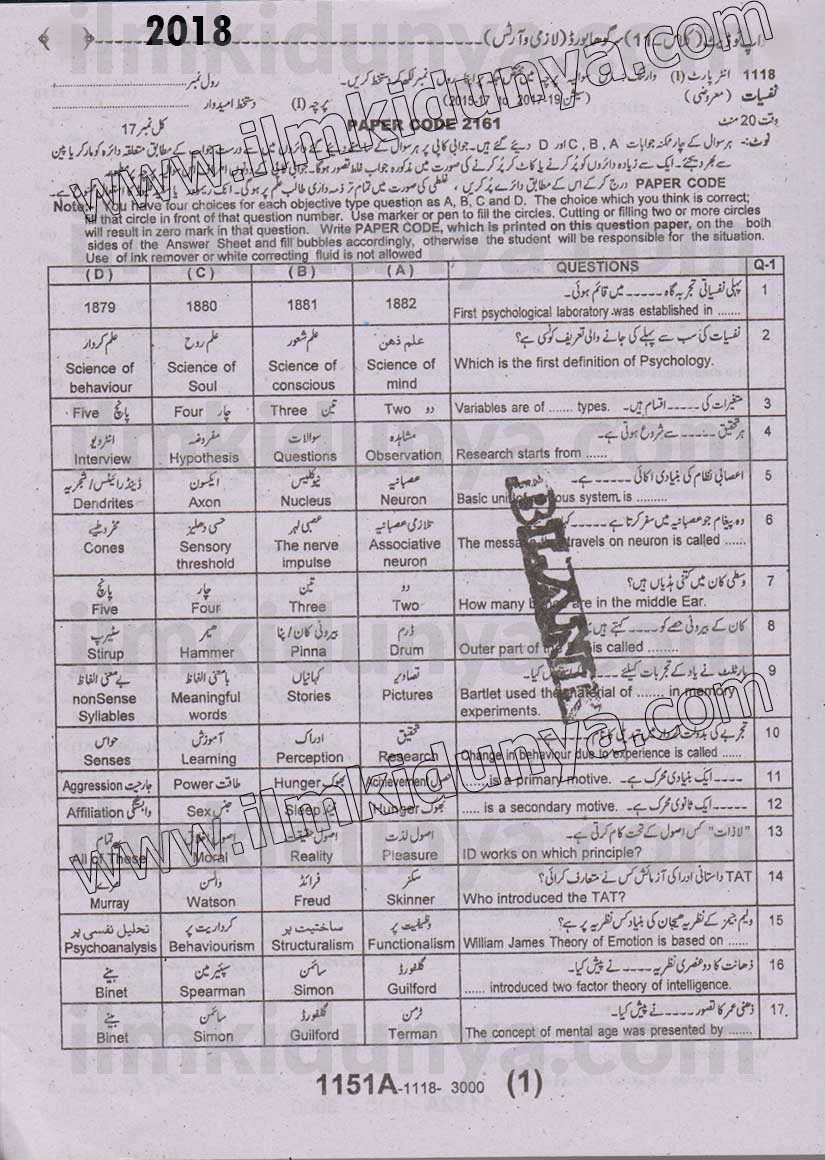 2018
اپ ٹو ڈیٹ (کلاس-11) سرگودھا بورڈ (لازمی و آرٹس)
1118 انٹر پارٹ (I) رول نمبر
نفسیات (معروضی) (2015-17 to 2017-19 سیشن) پرچہ (I) دستخط امیدوار
وقت 20 منٹ PAPER CODE 2161 کل نمبر 17
نوٹ: ہر سوال کے چار ممکنہ جوابات A, B, C اور D دیئے گئے ہیں۔
PAPER CODE
Note: You have four choices for each objective type question as A, B, C and D. The choice which you think is correct;
fill that circle in front of that question number. Use marker or pen to fill the circles. Cutting or filling two or more circles
will result in zero mark in that question. Write PAPER CODE, which is printed on this question paper, on the both
sides of the Answer Sheet and fill bubbles accordingly, otherwise the student will be responsible for the situation.
Use of ink remover or white correcting fluid is not allowed
(D) (C) (B) (A) QUESTIONS Q-1
پہلی نفسیاتی تجربہ گاہ ----- میں قائم ہوئی۔ 1
1879 1880 1881 1882 First psychological laboratory was established in .......
علم کردار علم روح علم شعور علم ذھن نفسیات کی سب سے پہلے کی جانے والی تعریف کونسی ہے؟ 2
Science of behaviour Science of Soul Science of conscious Science of mind Which is the first definition of Psychology.
Five پانچ Four چار Three تین Two دو Variables are of ....... types. متغیرات کی ----- اقسام ہیں۔ 3
انٹرویو مفروضہ سوالات مشاہدہ ہر تحقیق ----- سے شروع ہوتی ہے۔ 4
Interview Hypothesis Questions Observation Research starts from ......
ڈینڈرائیٹس/شجریہ ایکسون نیوکلیس عصبانیہ اعصابی نظام کی بنیادی اکائی ----- ہے۔ 5
Dendrites Axon Nucleus Neuron Basic unit system is .........
مخروطیے حسی دھلیز عصبی لہر تلازمی عصبانیہ وہ پیغام جو عصبانیہ میں سفر کرتا ہے ----- 6
Cones Sensory threshold The nerve impulse Associative neuron The message travels on neuron is called ......
پانچ چار تین دو وسطی کان میں کتنی ہڈیاں ہیں؟ 7
Five Four Three Two How many are in the middle Ear.
سٹیرپ ھیمر بیرونی کان/پنا ڈرم کان کے بیرونی حصے کو ----- کہتے ہیں 8
Stirup Hammer Pinna Drum Outer part of the is called ........
بے معنی الفاظ با معنی الفاظ کہانیاں تصاویر بارٹلٹ نے یاد کے تجربات کیلئے کیا۔ 9
nonSense Syllables Meaningful words Stories Pictures Bartlet used the material of ....... in memory experiments.
حواس آموزش ادراک تحقیق 10
Senses Learning Perception Research Change in behaviour due to experience is called ......
Aggression جارحیت Power طاقت Hunger بھوک Achievement ..... is a primary motive. ----- ایک بنیادی محرک ہے۔ 11
Affiliation وابستگی Sex جنس Sleep Hunger بھوک ..... is a secondary motive. ----- ایک ثانوی محرک ہے۔ 12
تمام اصول اخلاق اصول حقیقت اصول لذت "لاذات" کس اصول کے تحت کام کرتی ہے۔ 13
All of These Moral Reality Pleasure ID works on which principle?
مرے واٹسن فرائڈ سکنر TAT داستانی ادراک کی آزمائش کس نے متعارف کرائی؟ 14
Murray Watson Freud Skinner Who introduced the TAT?
تحلیل نفسی پر کرداریت پر ساختیت پر وظیفیت پر ولیم جیمز کے نظریہ ھیجان کی بنیاد کس نظریہ پر ہے؟ 15
Psychoanalysis Behaviourism Structuralism Functionalism William James Theory of Emotion is based on ......
بینے سپئیرمین سائمن گلفورڈ ذھانت کا دو عنصری نظریہ ---- نے پیش کیا۔ 16
Binet Spearman Simon Guilford ...... introduced two factor theory of intelligence.
بینے سائمن گلفورڈ ٹرمن ذھنی عمر کا تصور ---- نے پیش کیا۔ 17
Binet Simon Guilford Terman The concept of mental age was presented by .......
1151A-1118- 3000 (1)
www.ilmkidunya.com
www.ilmkidunya.com
ilmkidunya.com